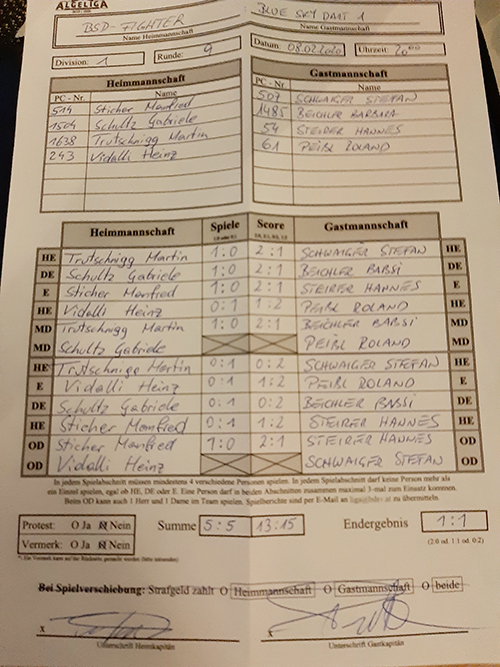 BSD-FIGHTER BLUE SKY DART 1
Name Heimmannschaft Name Gastmannschaft
Division: 1 Runde: 9 Datum: 08.02.2020 Uhrzeit: 20⁰⁰
Heimmannschaft Gastmannschaft
PC - Nr. Name PC - Nr. Name
514 Sticher Manfred 507 SCHWAIGER STEFAN
1504 Schultz Gabriele 1485 BEICHLER BARBARA
1638 Trutschnigg Martin 54 STEIRER HANNES
243 Vidalli Heinz 61 PEIßL ROLAND
Heimmannschaft Spiele Score Gastmannschaft
HE Trutschnigg Martin 1:0 2:1 SCHWAIGER STEFAN HE
DE Schultz Gabriele 1:0 2:1 BEICHLER BABSI DE
E Sticher Manfred 1:0 2:1 STEIRER HANNES E
HE Vidalli Heinz 0:1 1:2 PEIßL ROLAND HE
MD Trutschnigg Martin 1:0 2:1 BEICHLER BABSI MD
MD Schultz Gabriele PEIßL ROLAND MD
HE Trutschnigg Martin 0:1 0:2 SCHWAIGER STEFAN HE
E Vidalli Heinz 0:1 1:2 PEIßL ROLAND E
DE Schultz Gabriele 0:1 0:2 BEICHLER BABSI DE
HE Sticher Manfred 0:1 1:2 STEIRER HANNES HE
OD Sticher Manfred 1:0 2:1 STEIRER HANNES OD
OD Vidalli Heinz SCHWAIGER STEFAN OD
In jedem Spielabschnitt müssen mindestens 4 verschiedene Personen spielen. In jedem Spielabschnitt darf keine Person mehr als
ein Einzel spielen, egal ob HE, DE oder E. Eine Person darf in beiden Abschnitten zusammen maximal 3-mal zum Einsatz kommen.
Beim OD kann auch 1 Herr und 1 Dame im Team spielen. Spielberichte sind per E-Mail an zu übermitteln.
Protest: O Ja Nein Summe 5:5 13:15 Endergebnis 1:1
Vermerk: O Ja Nein (2:0 od. 1:1 od. 0:2)
Bei Spielverschiebung: Strafgeld zahlt O Heimmannschaft O Gastmannschaft O beide
x x
Unterschrift Heimkapitän Unterschrift Gastkapitän